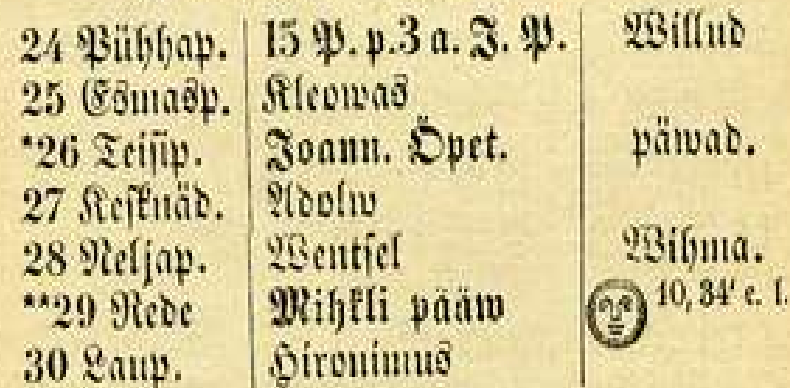 24 Pühhap. 15 P. p. 3 a. J. P. Willud
25 Esmasp. Kleowas
*26 Teisip. Joann. Öpet. päwad.
27 Kesknäd. Adolw
28 Neljap. Wentsel Wihma.
**29 Rede Mihkli pääw 10, 34' e. l.
30 Laup. Hironimus